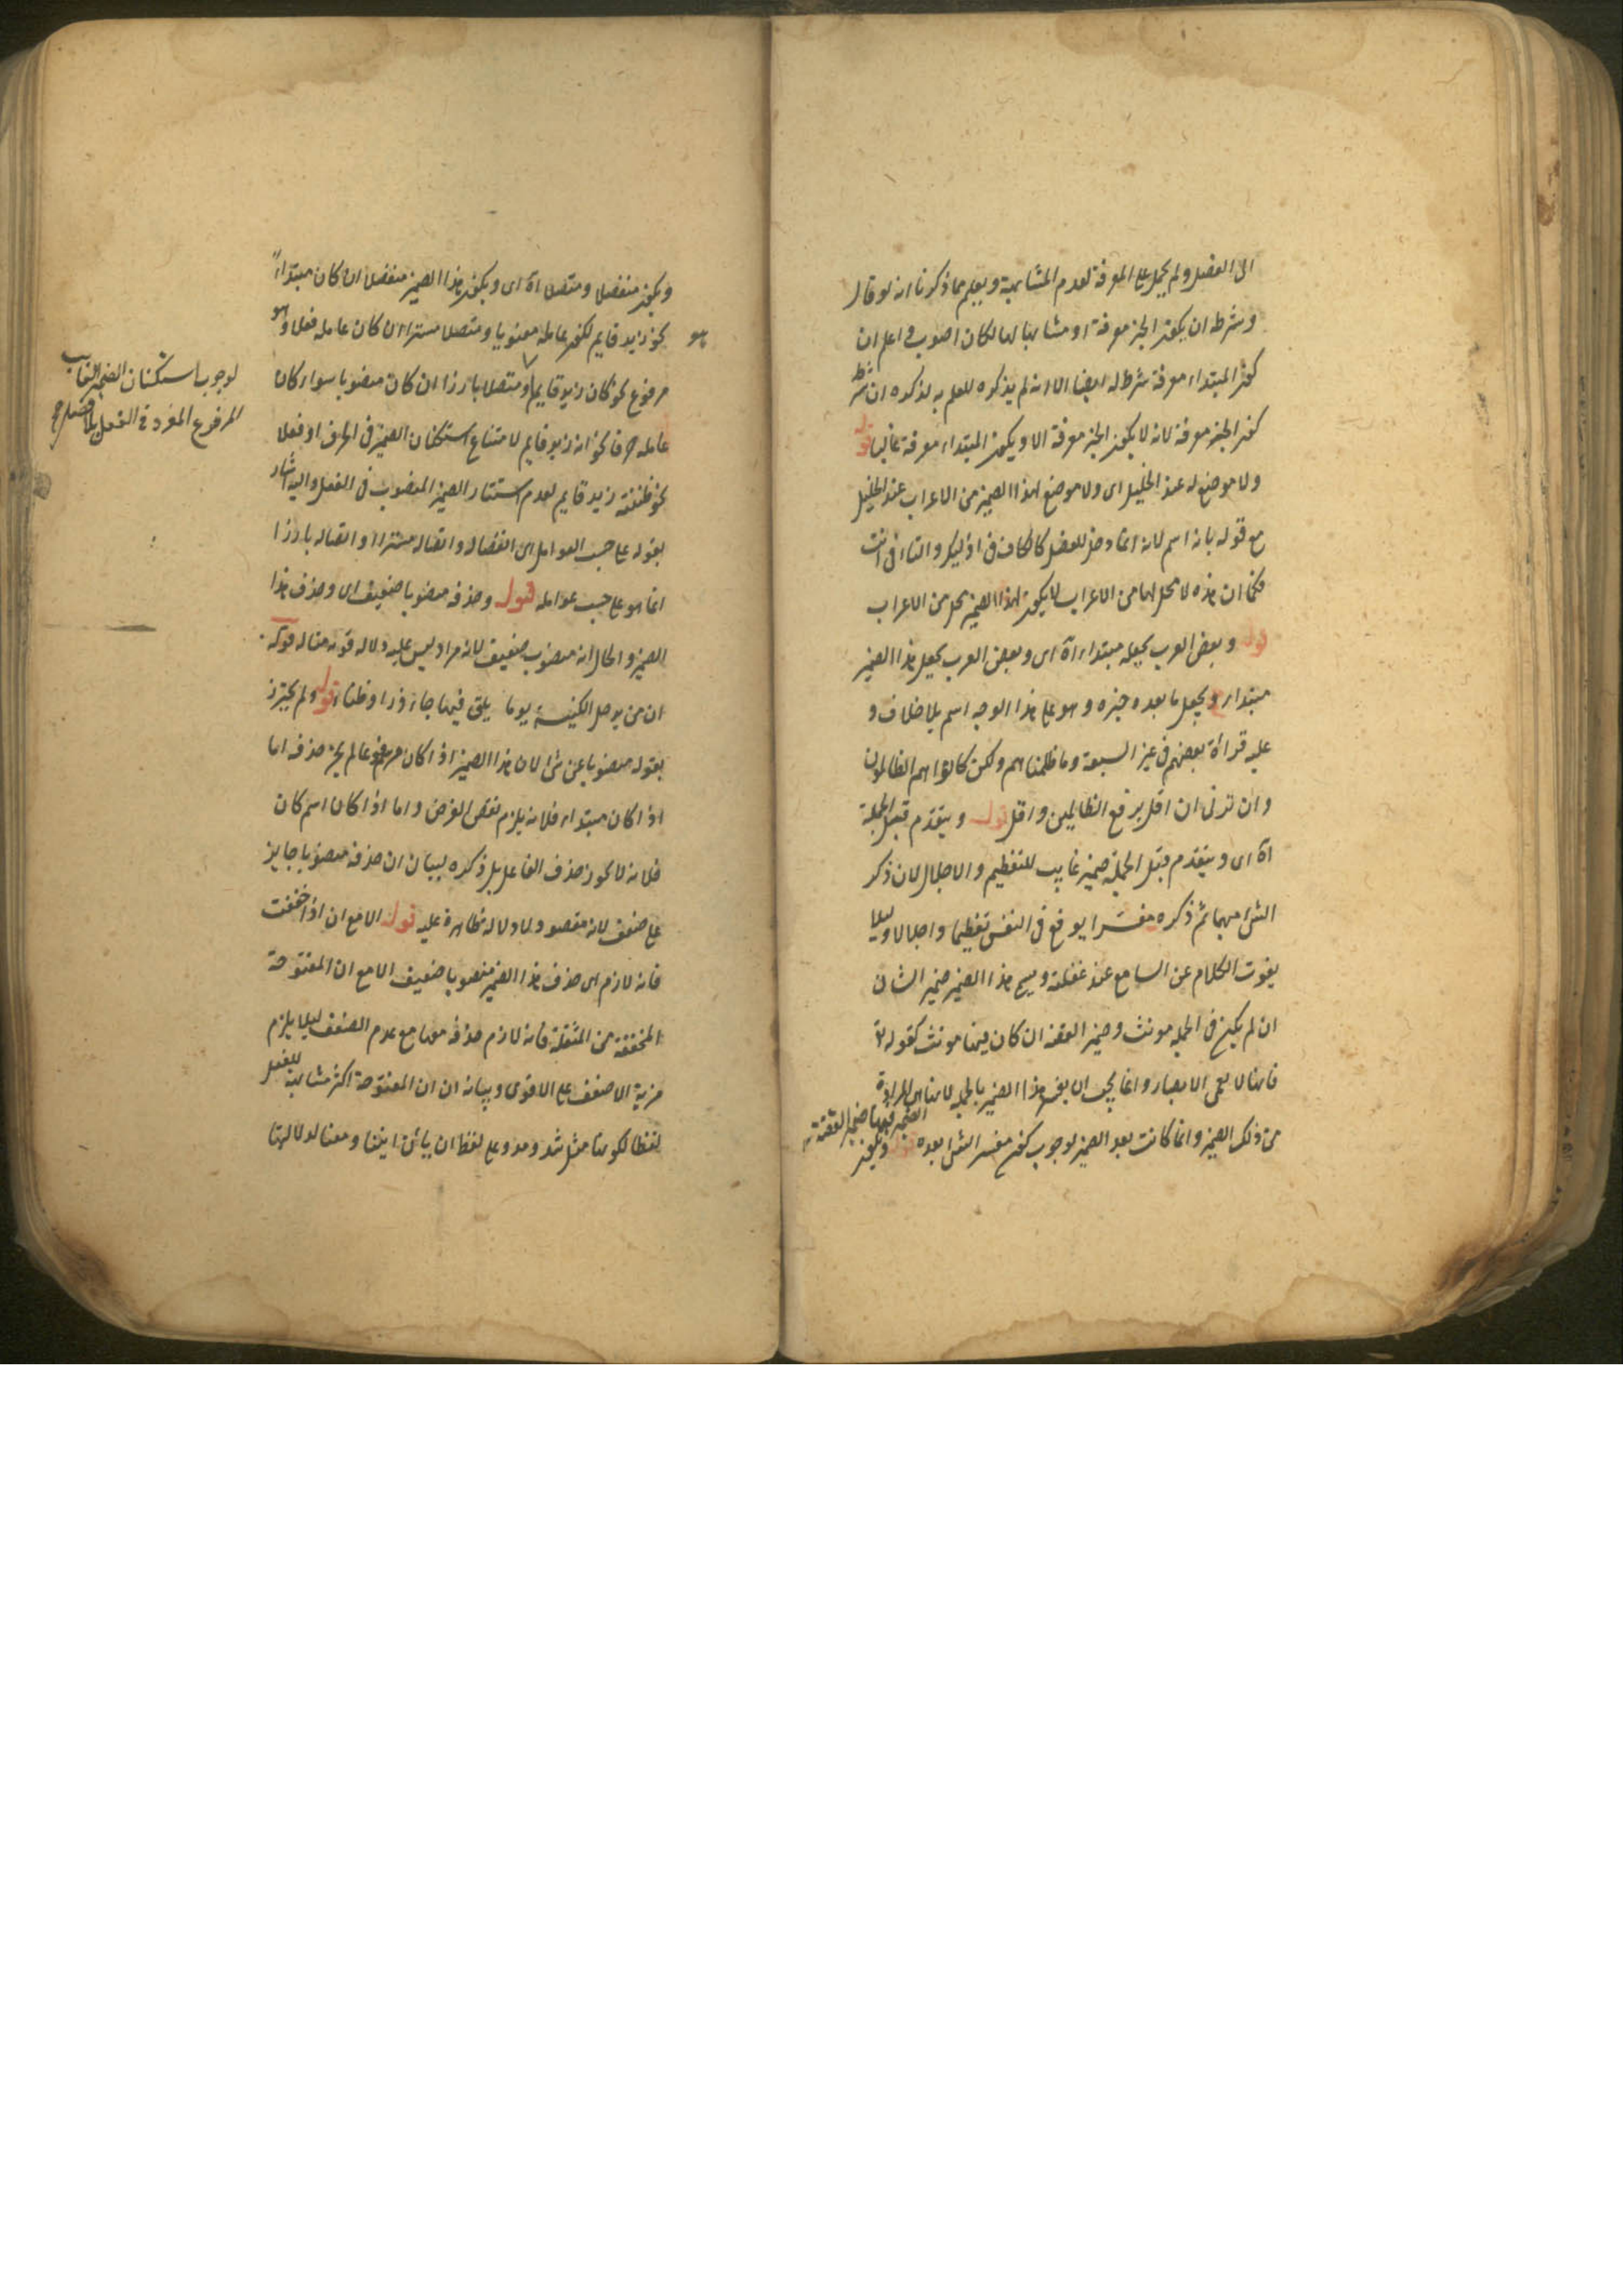 الى الفصل ولم يحمل على المعرفة لعدم المشابهة ويعلم مما ذكرنا انه لو قال
وشرطه ان يكون الخبر معرفة او مشابها لها لكان اصوب واعلم ان
كون المبتداء معرفة شرط له ايضا الا انه لم يذكره للعلم به لذكره ان شرطه
كون الخبر معرفة لانه لا يكون الخبر معرفة الا ويكون المبتداء معرفة غالبا قوله
ولا موضع له عند الخليل اى ولا موضع لهذا الضمير من الاعراب عند الخليل
مع قوله بانه اسم لانه انما دخل للفصل كالكاف فى اوليك والتاء فى انت
فكما ان هذه لا محل لها من الاعراب لا يكون لهذا الضمير محل من الاعراب
قوله وبعض العرب يجعله مبتداء اه اى وبعض العرب يجعل هذا الضمير
مبتداء ويجعل ما بعده خبره وهو على هذا الوجه اسم بلا خلاف و
عليه قراة بعضهم فى غير السبعة وما ظلمناهم ولكن كانوا هم الظالمون
وان ترنى انا اقل برفع الظالمين واقل قوله ويتقدم قبل الجملة
اه اى ويتقدم قبل الجملة ضمير غايب للتعظيم والاجلال لان ذكر
الشئ مبهما ثم ذكره مفسرا يوقع فى النفس تعظيما واجلالا وليلا
يفوت الكلام عن السامع عند غفلته ويسمى هذا الضمير ضمير الشان
ان لم يكن فى الجملة مونث وضمير القصة ان كان فيها مونث كقوله تع
فانها لا تعمى الابصار وانما يجب ان يفسر هذا الضمير بالجملة لانها هى المرادة
من ذلك الضمير وانما كانت بعد الضمير لوجوب كون مفسر الشئ بعده قوله ويكون
الضمير فيها ضمير القصة
ويكون منفصلا ومتصلا اه اى ويكون هذا الضمير منفصلا ان كان مبتداء
نحو هو زيد قايم لكون عامله معنويا ومتصلا مستترا ان كان عامله فعلا وهو
مرفوع نحو كان زيد قايم ومتصلا بارزا ان كان منصوبا سواء كان
عامله حرفا نحو انه زيد قايم لامتناع استكنان الضمير فى الحرف او فعلا
نحو ظننته زيد قايم لعدم استتار الضمير المنصوب فى الفعل واليه اشار
بقوله على حسب العوامل اى انفصاله واتصاله مستترا واتصاله بارزا
انما هو على حسب عوامله قوله وحذفه منصوبا ضعيف اى وحذف هذا
الضمير والحال انه منصوب ضعيف لانه مراد ليس عليه دلالة قوية مثاله قوله
ان من يدخل الكنيسة يوما يلق فيها جاذرا وظباء قوله ولم يحترز
بقوله منصوبا عن شئ لان هذا الضمير اذا كان مرفوعا لم يجز حذفه اما
اذا كان مبتداء فلانه يلزم نقض الغرض واما اذا كان اسم كان
فلانه لا يجوز حذف الفاعل بل ذكره لبيان ان حذفه منصوبا جايز
على ضعف لانه مقصود ولا دلالة ظاهرة عليه قوله الا مع ان اذا خففت
فانه لازم اى حذف هذا الضمير منصوبا ضعيف الا مع ان المفتوحة
المخففة من المثقلة فانه لازم حذفه معها مع عدم الضعف ليلا يلزم
مزية الاضعف على الاقوى وبيانه ان ان المفتوحة اكثر مشابهة للفعل
لفظا لكونها مثل شد ومد وعلى لفظ ان يائن اينا ومعنا لدلالتها
لوجوب استكنان الضمير الغايب
المرفوع المفرد فى الفعل بلا فصل